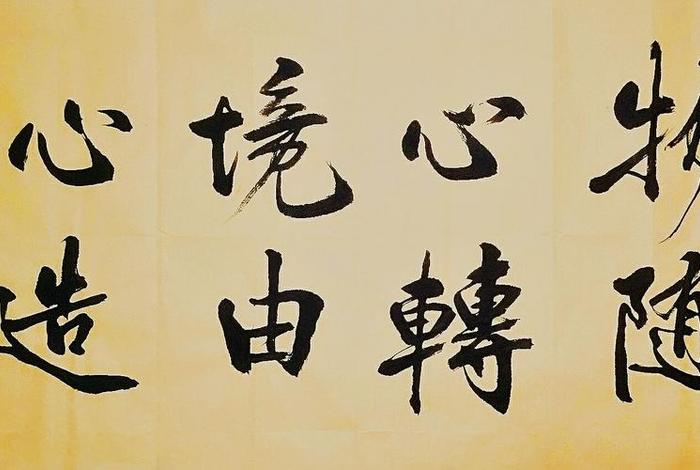 物随
心轉
境由
心造